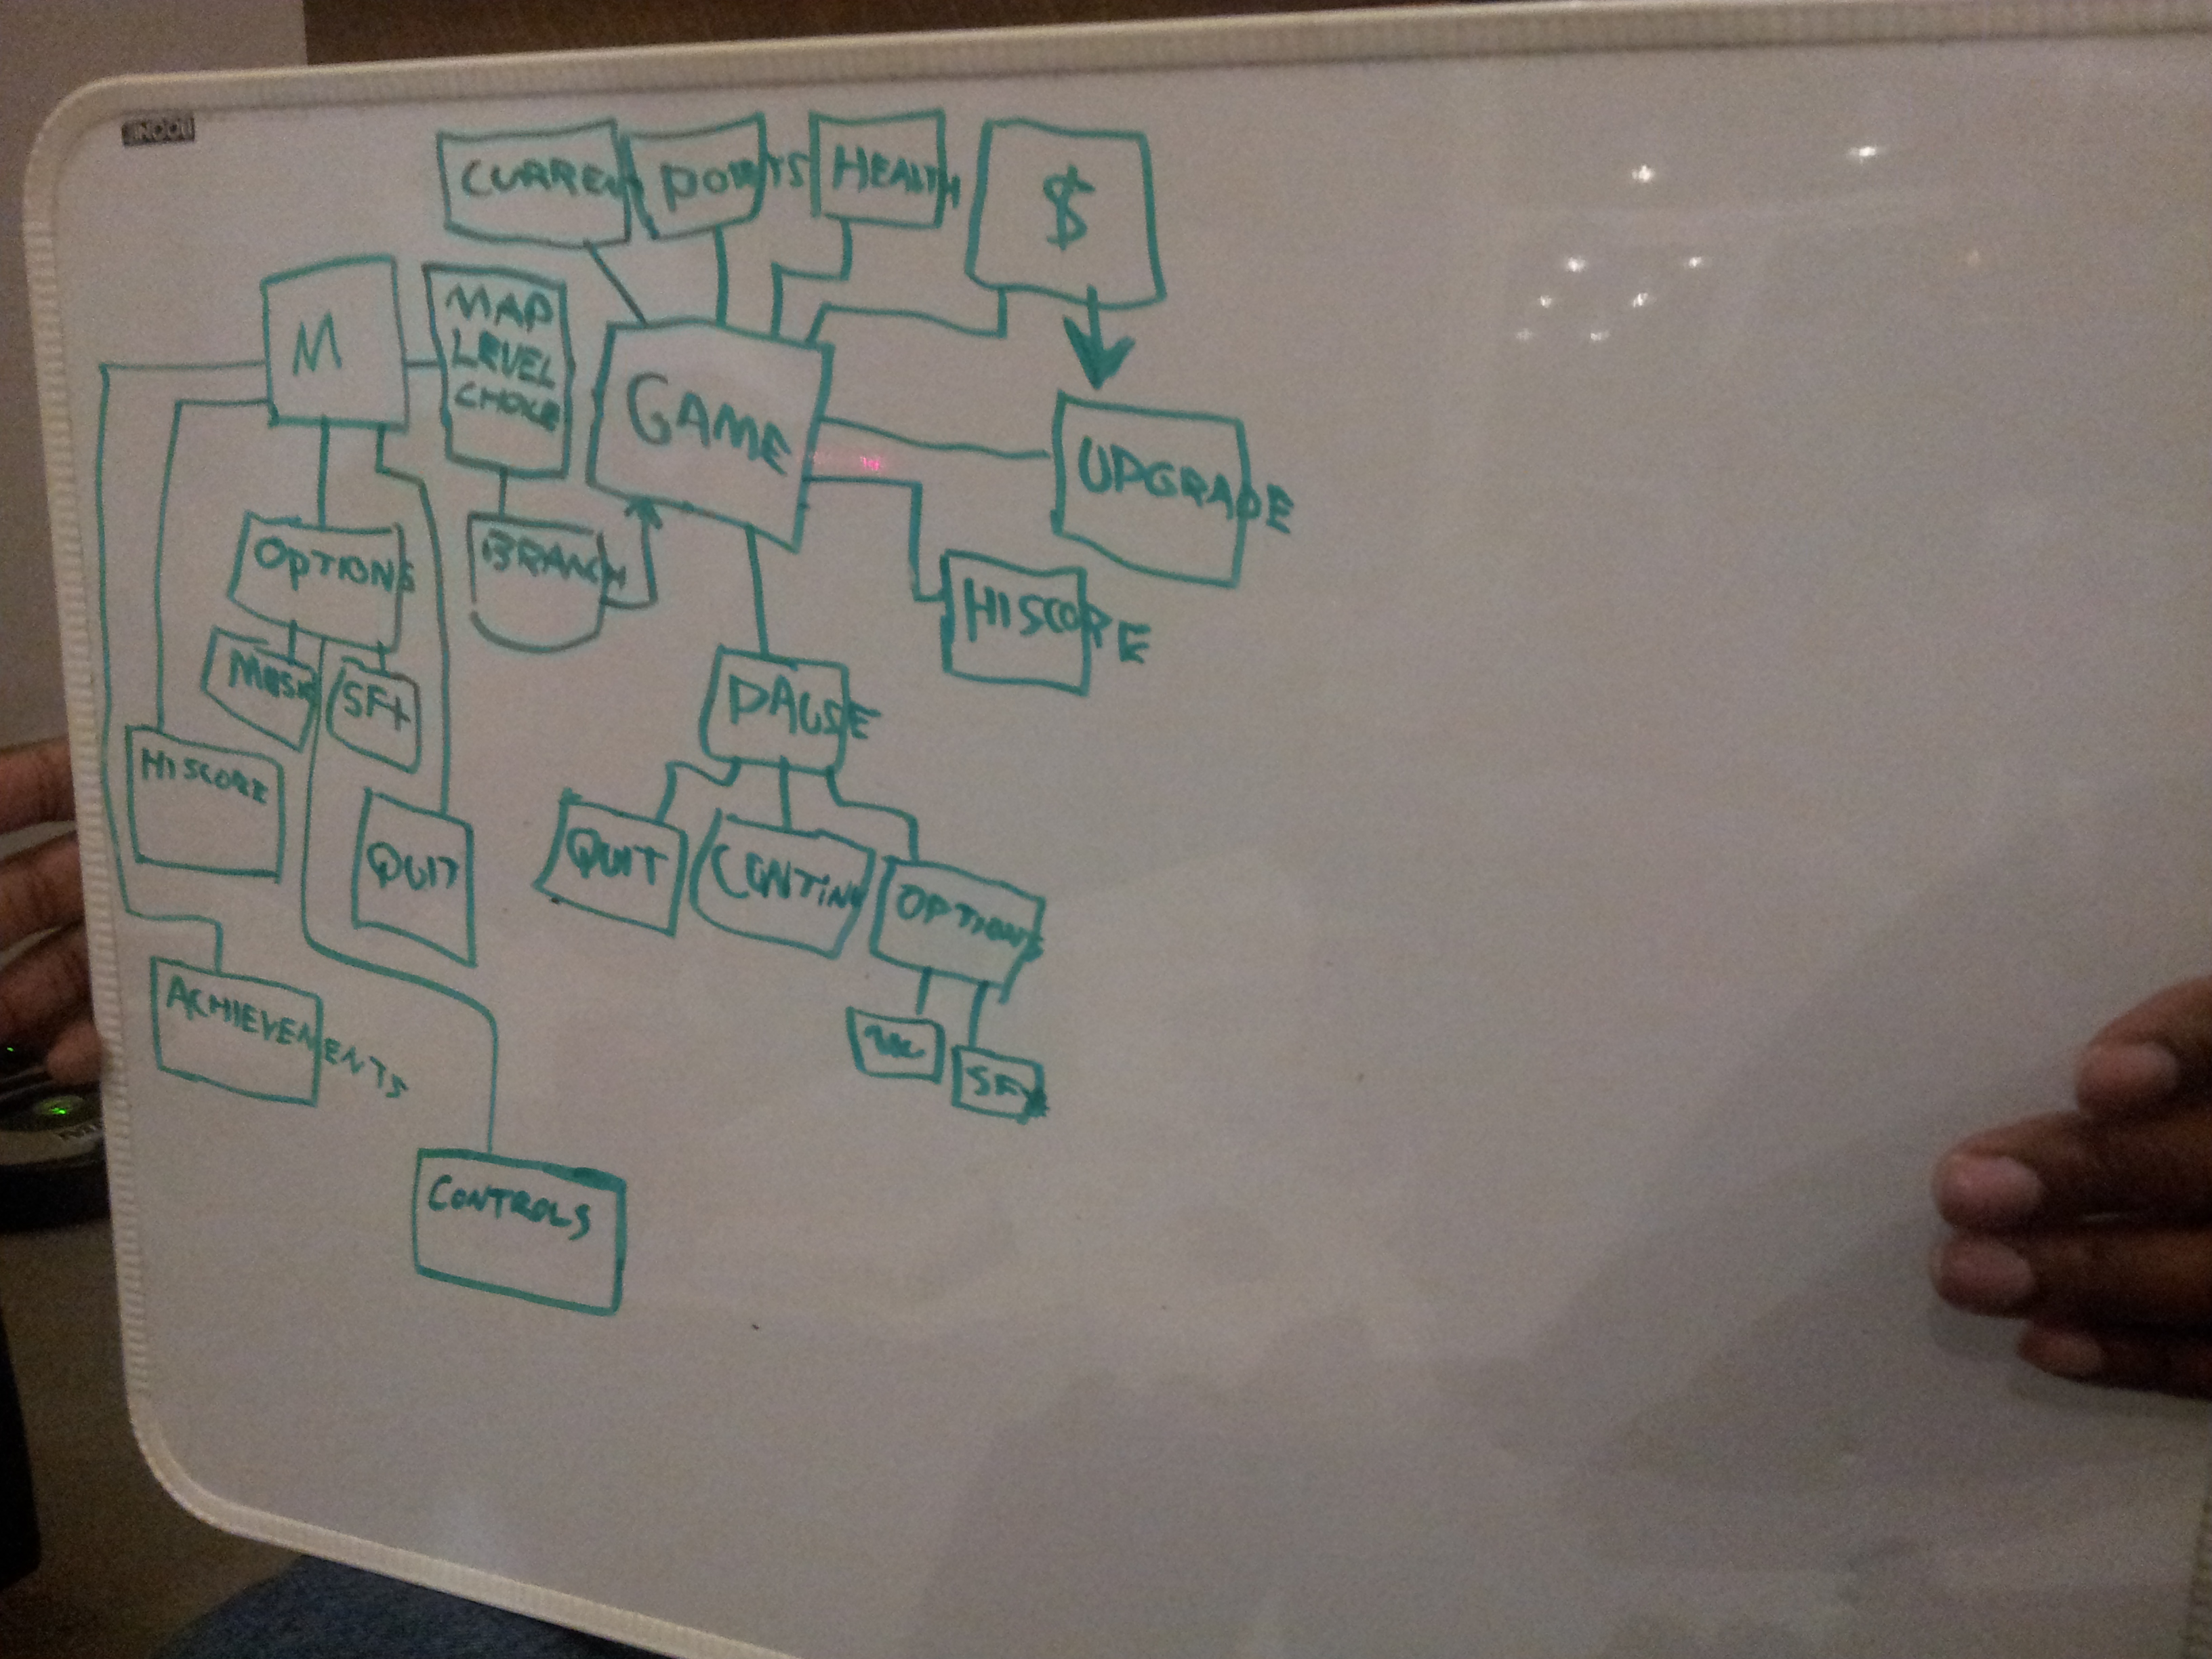 CURREN
POINTS
HEALTH
$
M
MAP
LEVEL
CHOICE
GAME
UPGRADE
OPTIONS
BRANCH
HISCORE
MUSIC
SFX
PAUSE
HISCORE
QUIT
QUIT
CONTINU
OPTIONS
ACHIEVEMENTS
SFX
CONTROLS